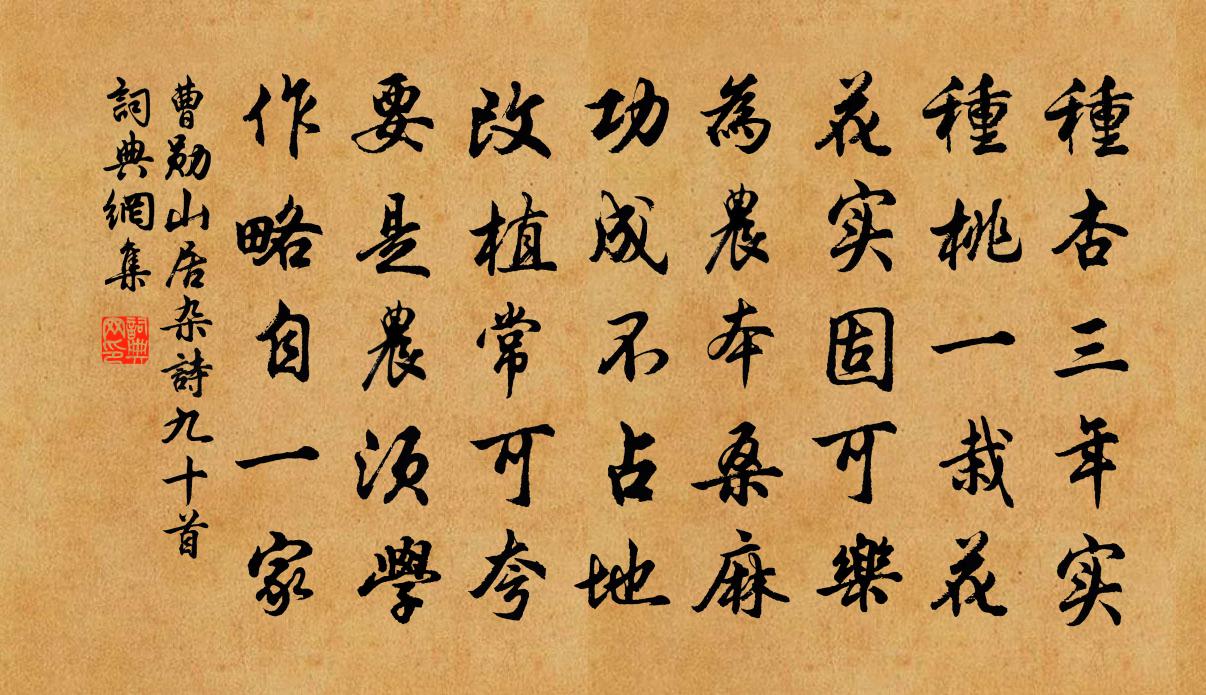 種杏三年实
種桃一栽花
花实固可樂
為農本桑麻
功成不占地
改植常可夸
要是農須學
作略自一家
曹勋山居杂詩九十首
詞典網集
詞典网印